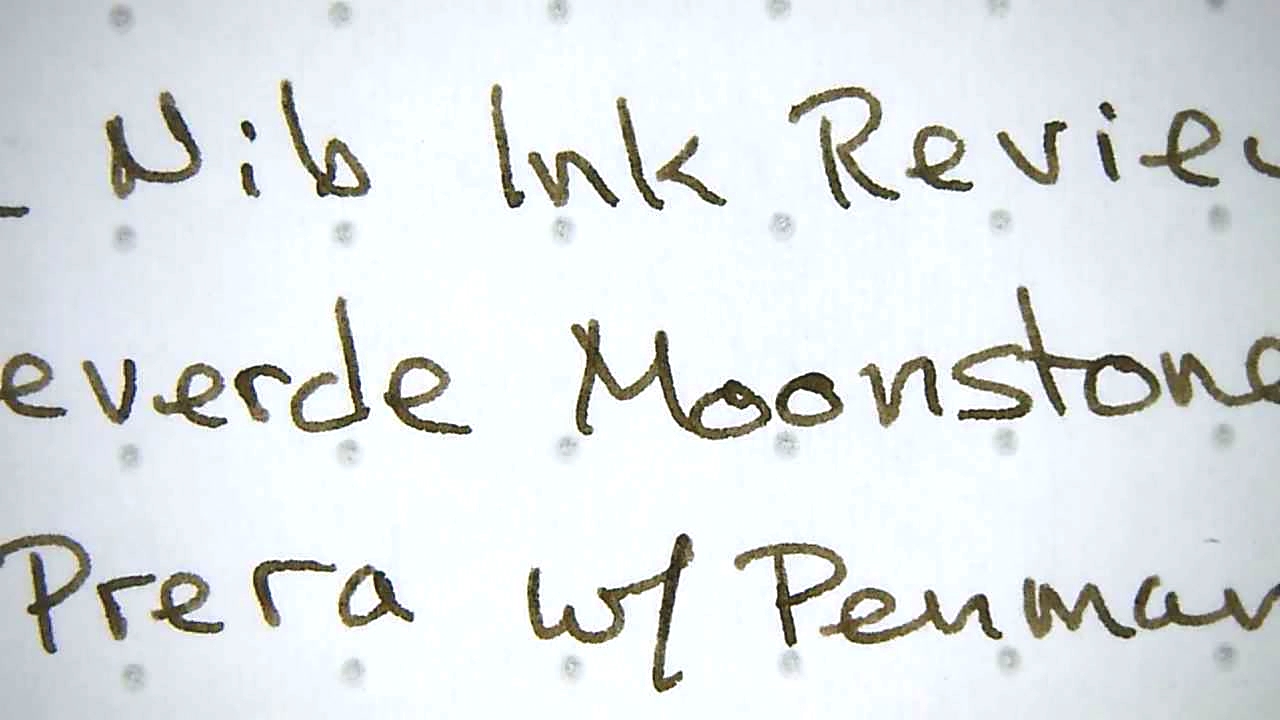 Nib Ink Review
everde Moonstone
Prera w/ Penman